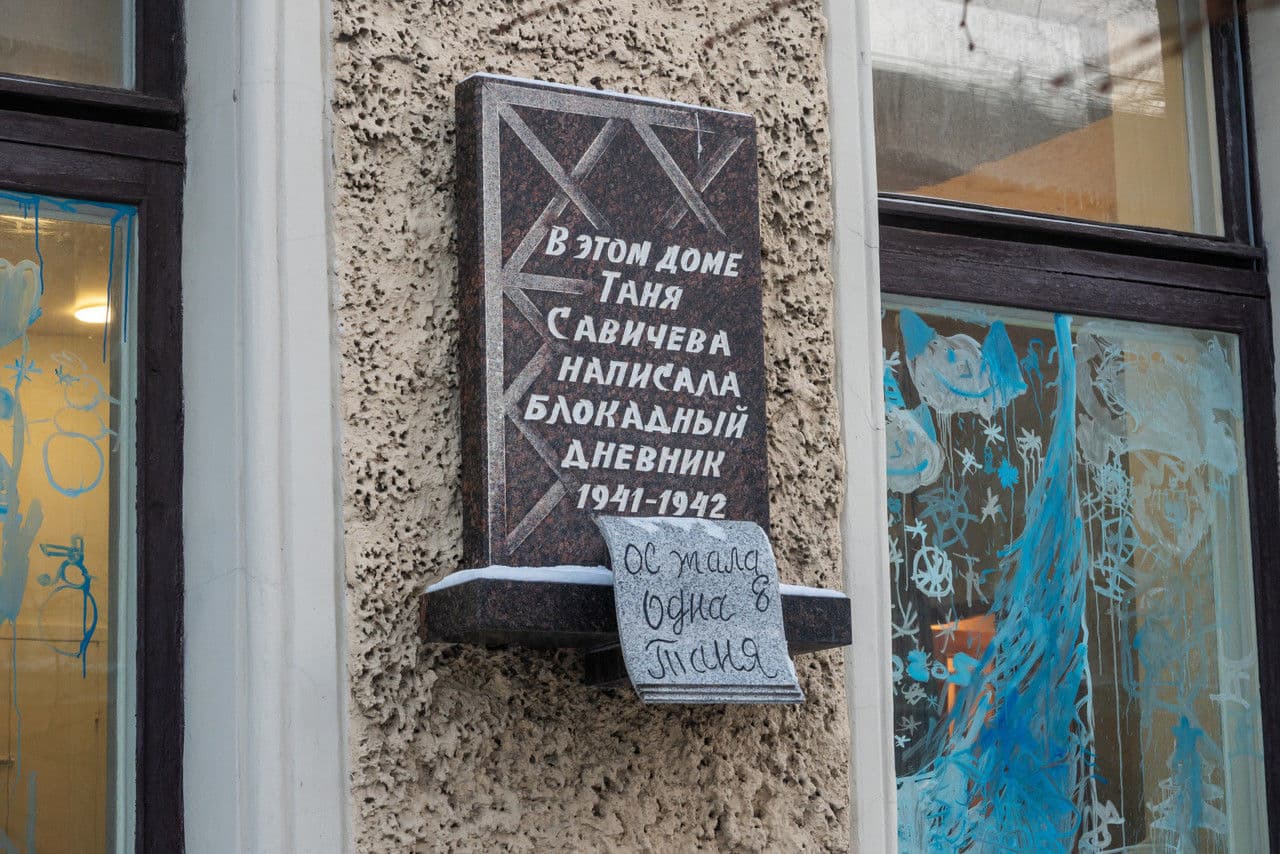 В ЭТОМ ДОМЕ
ТАНЯ
САВИЧЕВА
НАПИСАЛА
БЛОКАДНЫЙ
ДНЕВНИК
1941-1942
осталась
Одна
Таня